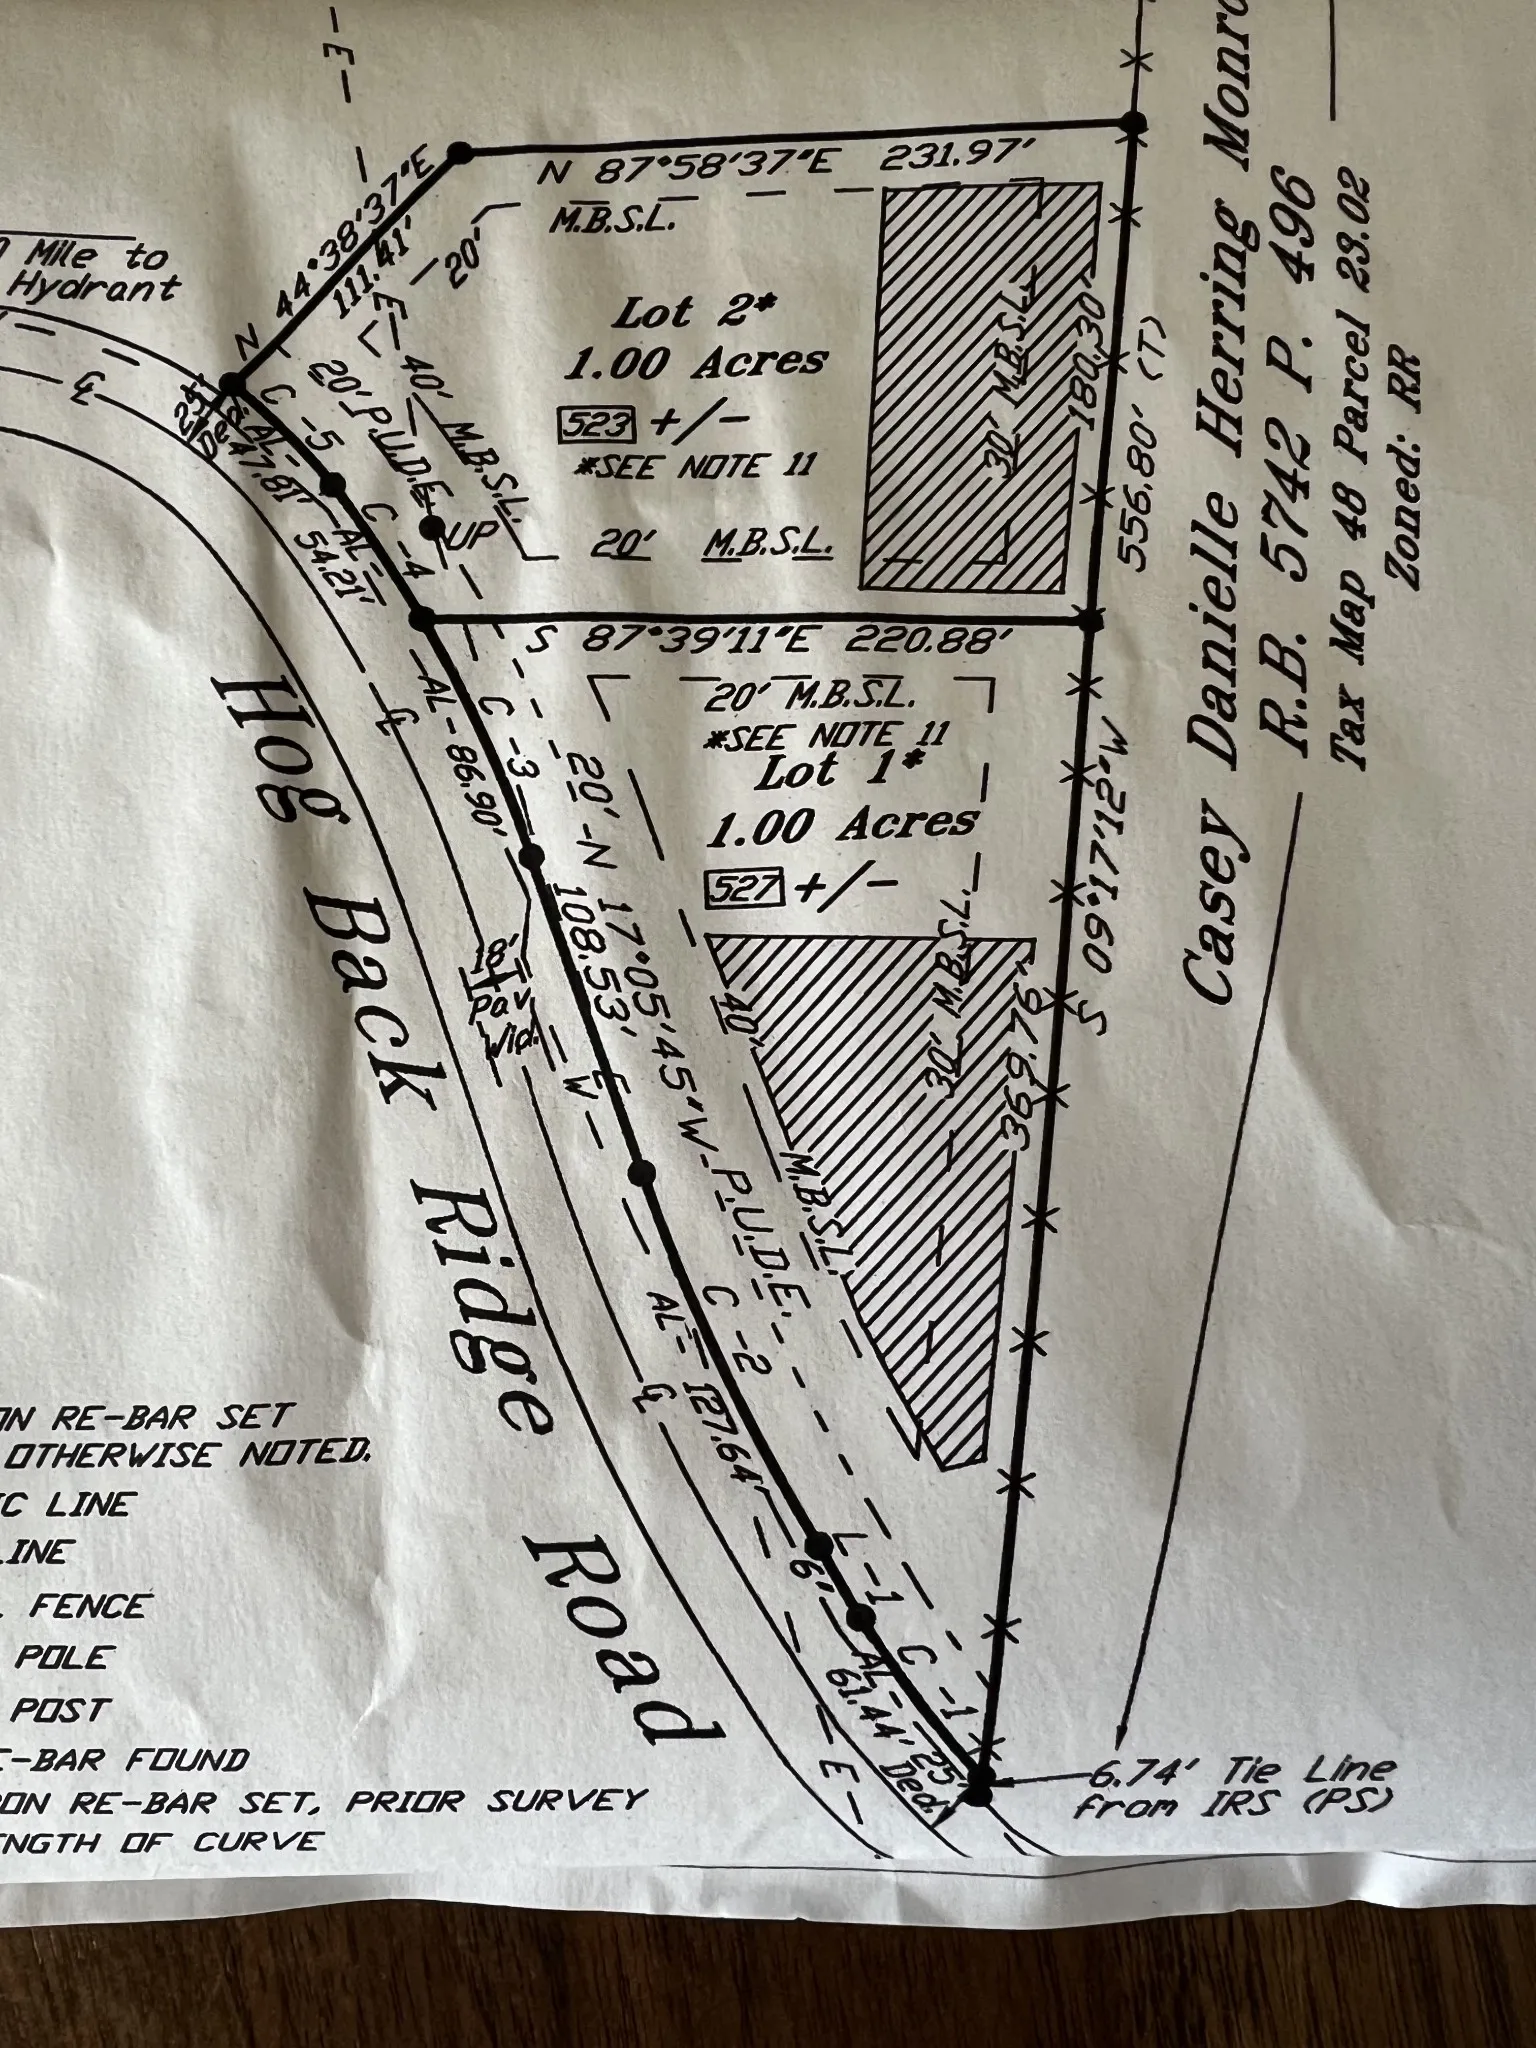 -E-
N 87°58'37"E 231.97'
N 44°38'37"E
111.41'
M.B.S.L.
20'
Mile to
Hydrant
E
Lot 2*
1.00 Acres
523 +/-
*SEE NOTE 11
20' M.B.S.L.
40' M.B.S.L.
20' P.U.D.E.
UP
30' M.B.S.L.
180.30'
556.80' (T)
25'
Ded.
C-5
AL-
47.81'
C-4
AL-
54.21'
℄
S 87°39'11"E 220.88'
20' M.B.S.L.
*SEE NOTE 11
Lot 1*
1.00 Acres
527 +/-
30' M.B.S.L.
369.76'
S 09°17'12"W
40' M.B.S.L.
C-3
AL-86.90'
℄
20' P.U.D.E.
N 17°05'45"W
108.53'
18'
Pav.
Wid.
E
W
C-2
AL-127.64'
℄
L-1
6'
C-1
AL-
61.44'
25'
Ded.
E
Hog Back Ridge Road
Casey Danielle Herring
R.B. 5742 P. 496
Tax Map 48 Parcel 23.02
Zoned: RR
6.74' Tie Line
from IRS (PS)
RE-BAR SET
OTHERWISE NOTED.
LINE
LINE
FENCE
POLE
POST
RE-BAR FOUND
RE-BAR SET, PRIOR SURVEY
OF CURVE